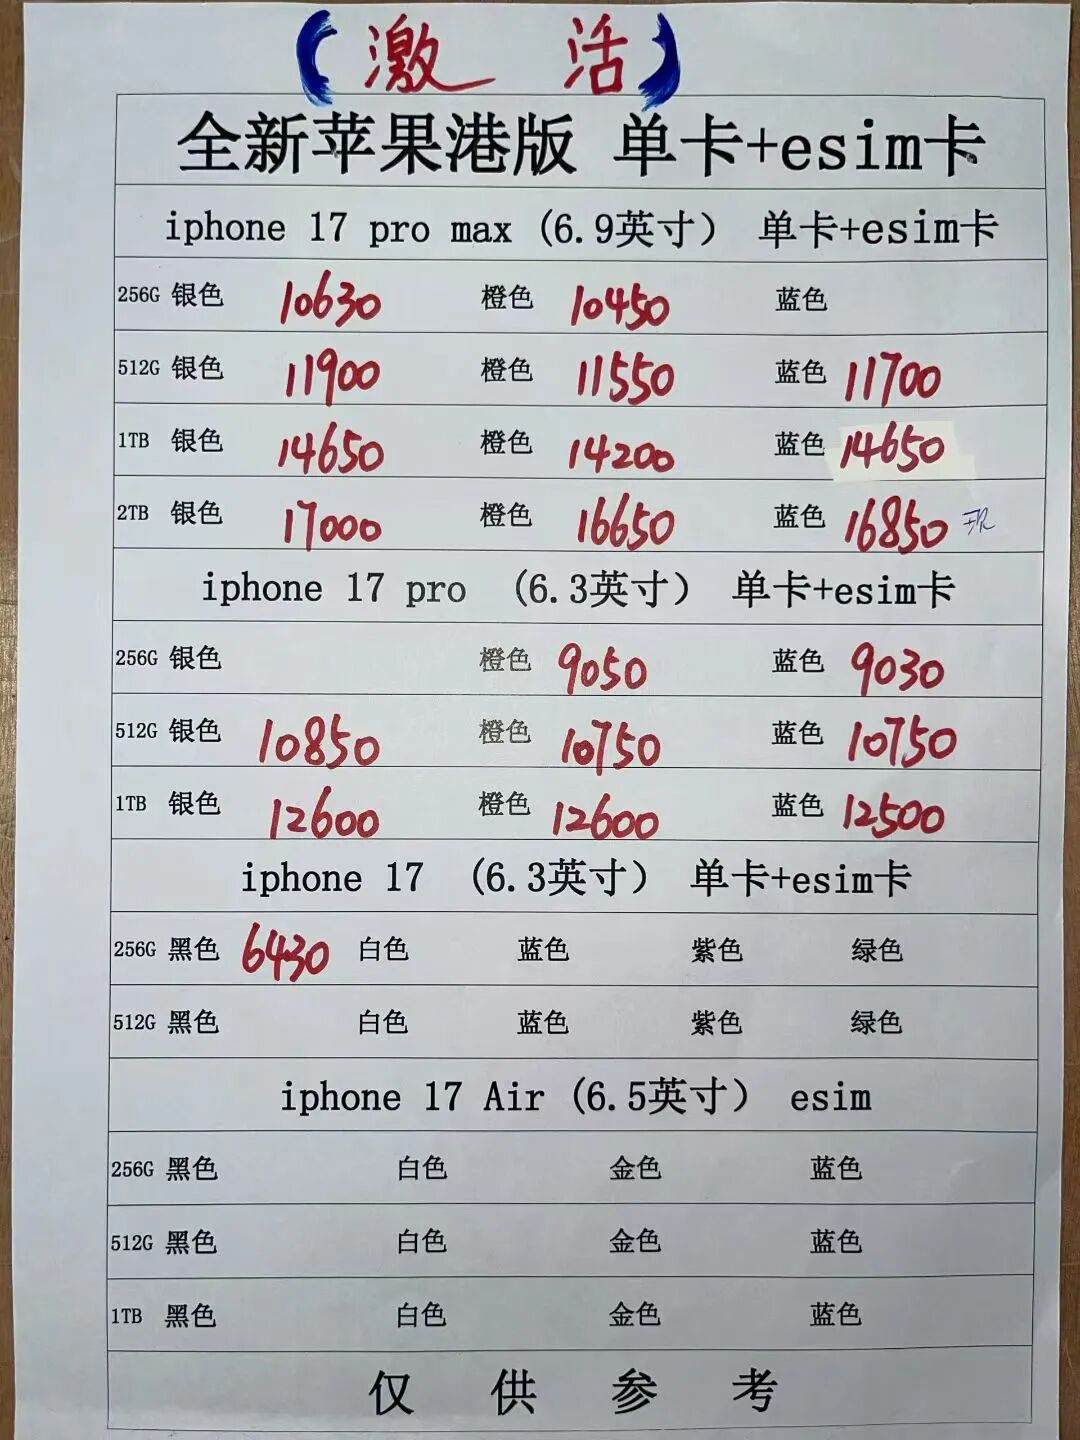 （激 活）
全新苹果港版 单卡+esim卡
iphone 17 pro max（6.9英寸） 单卡+esim卡
256G 银色 10630 橙色 10450 蓝色
512G 银色 11900 橙色 11550 蓝色 11700
1TB 银色 14650 橙色 14200 蓝色 14650
2TB 银色 17000 橙色 16650 蓝色 16850
iphone 17 pro （6.3英寸） 单卡+esim卡
256G 银色 橙色 9050 蓝色 9030
512G 银色 10850 橙色 10750 蓝色 10750
1TB 银色 12600 橙色 12600 蓝色 12500
iphone 17 （6.3英寸） 单卡+esim卡
256G 黑色 6430 白色 蓝色 紫色 绿色
512G 黑色 白色 蓝色 紫色 绿色
iphone 17 Air（6.5英寸） esim
256G 黑色 白色 金色 蓝色
512G 黑色 白色 金色 蓝色
1TB 黑色 白色 金色 蓝色
仅 供 参 考